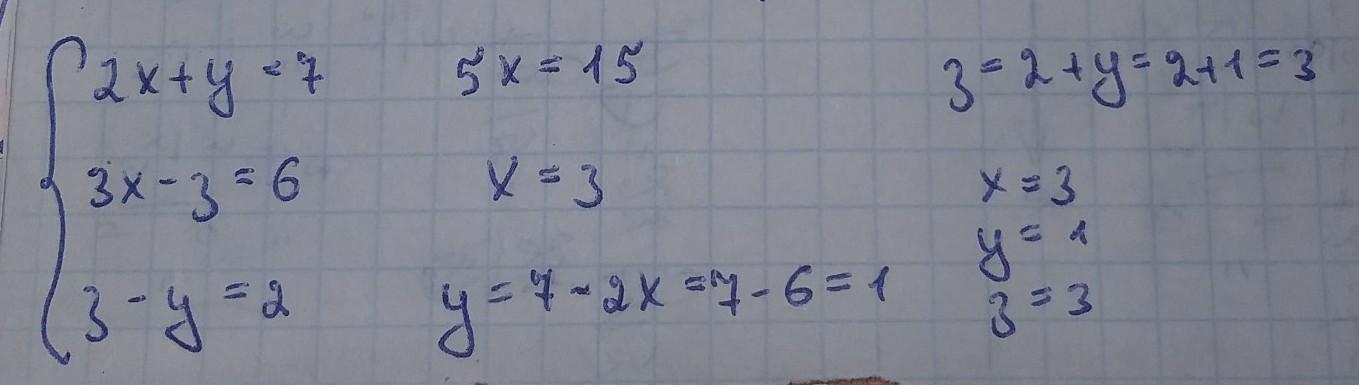 2x+y=7
3x-z=6
z-y=2
5x=15
x=3
y=7-2x=7-6=1
z=2+y=2+1=3
x=3
y=1
z=3